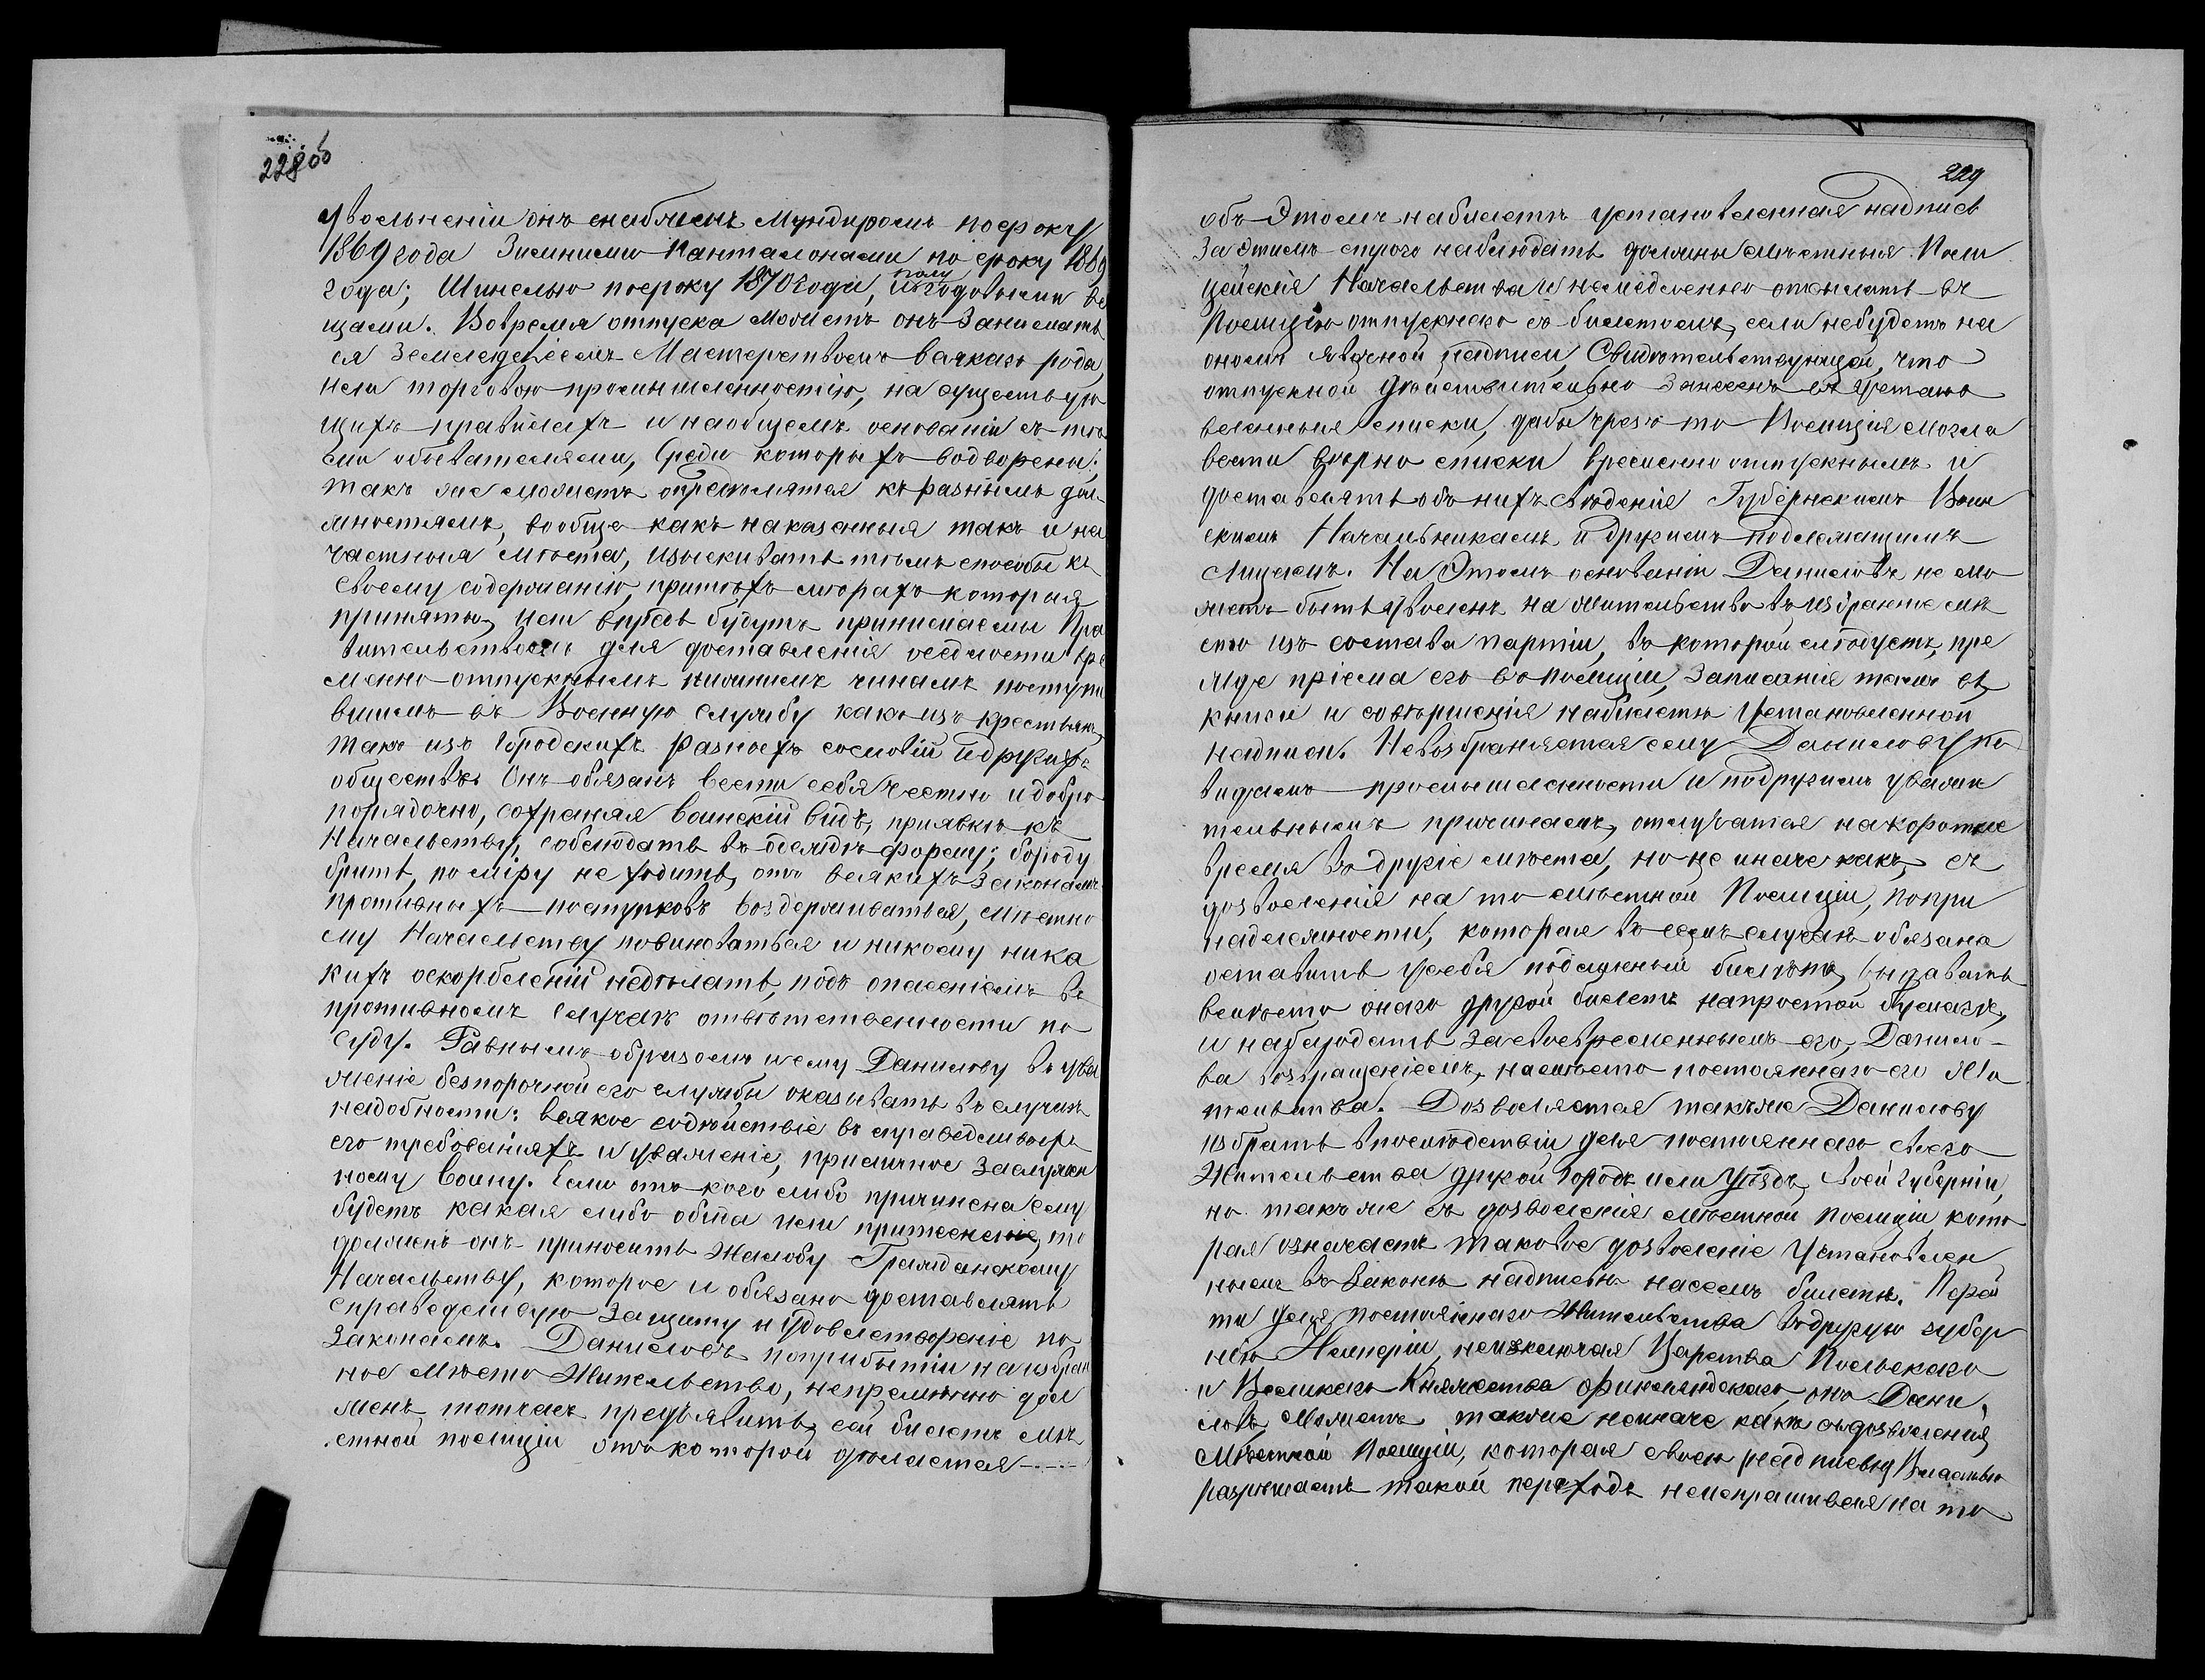 228об
увольненіи онъ снабженъ Мундиромъ посроку
1869 года Зимними Панталонами по сроку 1869
года; Шинелью посроку 1870 года, полу годовыми ве
щами. Вовремя отпуска можетъ онъ Занимать
ся Земледеліемъ Мастерствомъ всякаго рода,
или торговою промышленностію, на существую
щихъ правилахъ и наобщемъ основаніи съ тѣ
ми обывателями, Среди которыхъ водворены;
такъ же можетъ опредѣлятся къ разнымъ дол
жностямъ, вообще какъ наказенныя такъ и на
частныя мѣста, изыскивать тѣмъ способы къ
Своему содержанію, притѣхъ мѣрахъ которыя
приняты, или впредь будутъ принимаемы Пра
вительствомъ для доставленія оседлости вре
менно отпускнымъ нижнимъ чинамъ поступи
вшимъ въ Военную Службу какъ изъ крестьянъ
такъ изъ Городскихъ разныхъ сословій и другихъ
обществъ. Онъ обязанъ вести себя Честно и добро
порядочно, сохраняя воинскій видъ, приявкѣ къ
Начальству, соблюдать въ одеждѣ форму; бороду
брить, по міру не ходить, отъ всякихъ Законамъ
противныхъ поступковъ воздерживаться, мѣстно
му Начальству повиноваться и никому ника
кихъ оскорбленій недѣлать, подъ опасеніемъ въ
противномъ Случаѣ отвѣтственности по
Суду. Равнымъ образомъ и ему Данилову въ ува
женіе безпорочной его службы оказывать въ случаѣ
надобности: всякое содѣйствіе въ справедливыхъ
его требованіяхъ и уваженіе, приличное Заслужен
ному Воину. Если отъ кого либо причинена ему
будетъ какая либо обида или притесненіе, то
долженъ онъ приносить Жалобу Гражданскому
Начальству, которое и обязано доставлять
справедливую Защиту и удовлетвореніе по
Законамъ. Даниловъ поприбытіи на избран
ное Мѣсто Жительство, непремѣнно дол
женъ тотчасъ предъявить, сей билетъ мѣ
стной полиціи отъ которой дѣлается----
229
объ Этомъ набилетѣ установленная надпись
За Этимъ строго наблюдать должны мѣстныя Поли
цейскія Начальства и немедленно отсылать въ
Полицію отпускнаго съ билетомъ, если небудетъ на
ономъ явочной надписи, Свидѣтельствующей, что
отпускной дѣйствительно Занесенъ въ устано
вленныя списки, дабы чрезъ то Полиція могла
вести вѣрно списки временно отпускнымъ и
доставлять объ нихъ свѣденія Губернскимъ Воин
скимъ Начальникамъ и другимъ подлежащимъ
Лицамъ. На Этомъ основаніи Даниловъ не мо
жетъ быть уволенъ на жительство въ избранное мѣ
сто изъ состава партіи, въ которой слѣдуетъ, пре
жде пріема его въ полиціи, Записанія тамъ въ
книги и совершенія набилетѣ установленной
надписи. Невозбраняется ему Данилову по
видамъ промышленности и подругимъ уважи
тельнымъ причинамъ, отлучатся на короткое
время въ другіе мѣста, но не иначе какъ, съ
дозволенія на то мѣстной Полиціи, попри
надлежности, которая въ семъ случаѣ обязана
оставить усебя подлинный билетъ, выдавать
вмѣсто онаго другой билетъ напростой бумагѣ,
и наблюдать Засвоевременнымъ его, Данило-
ва возвращеніемъ, намѣсто постояннаго его Жи
тельства. Дозволяется такъже Данилову
избрать впослѣдствіи для постояннаго своего
Жительства другой Городъ или Уѣздъ, своей Губерніи,
но такъ же съ дозволенія мѣстной полиціи кото
рая означаетъ таковое дозволеніе установлен
нымъ въ Законѣ надписью насемъ билетѣ. Перей
ти для постояннаго Жительства въдругую губер
нію Имперіи, неизключая Царства Польскаго
и Великаго Княжества Финляндскаго, онъ Дани,
ловъ Можетъ также неиначе какъ съдозволенія
Мѣстной Полиціи, которая своею надписью Властью
разрѣшаетъ такой переходъ неиспрашивая на то